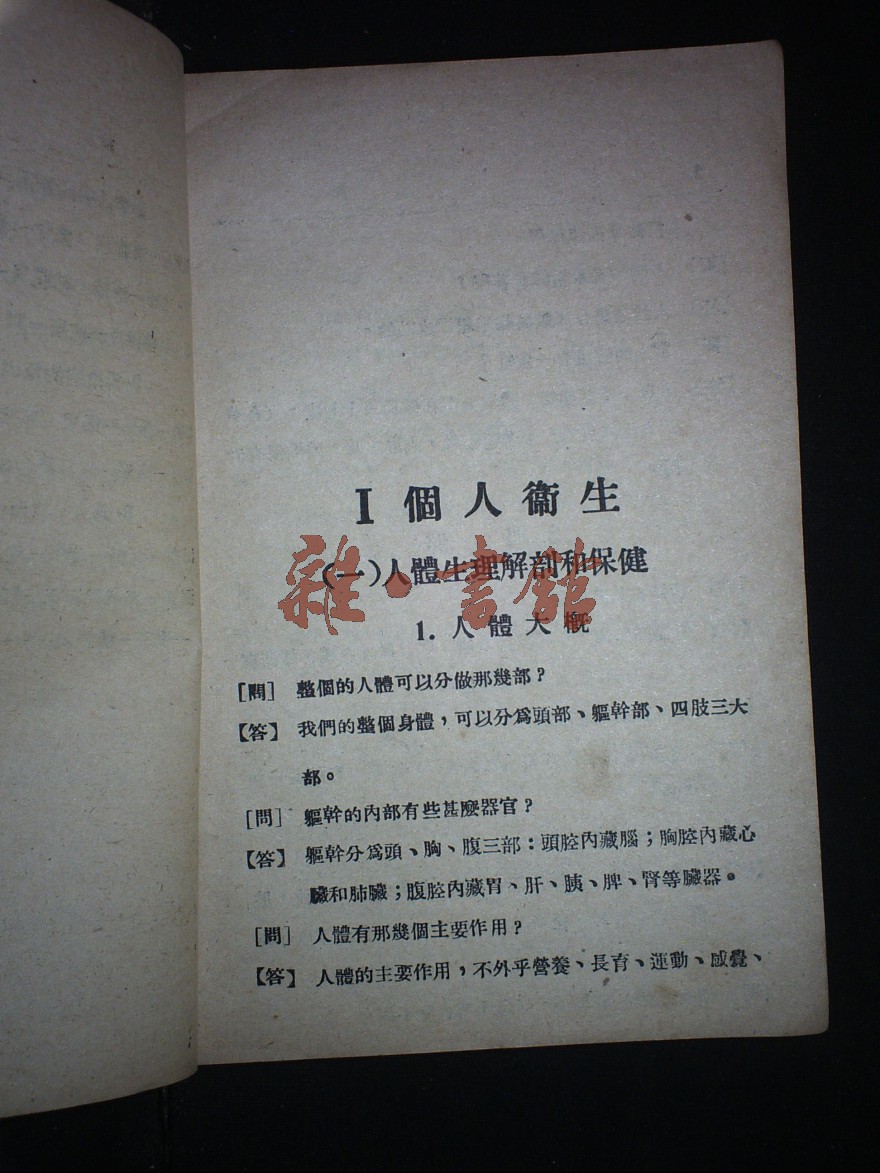 I 個人衞生
(一)人體生理解剖和保健
雜·書館
1. 人體大概
[問] 整個的人體可以分做那幾部？
【答】 我們的整個身體，可以分爲頭部、軀幹部、四肢三大
部。
[問] 軀幹的內部有些甚麼器官？
【答】 軀幹分爲頭、胸、腹三部：頭腔內藏腦；胸腔內藏心
臟和肺臟；腹腔內藏胃、肝、胰、脾、腎等臟器。
[問] 人體有那幾個主要作用？
【答】 人體的主要作用，不外乎營養、長育、運動、感覺、